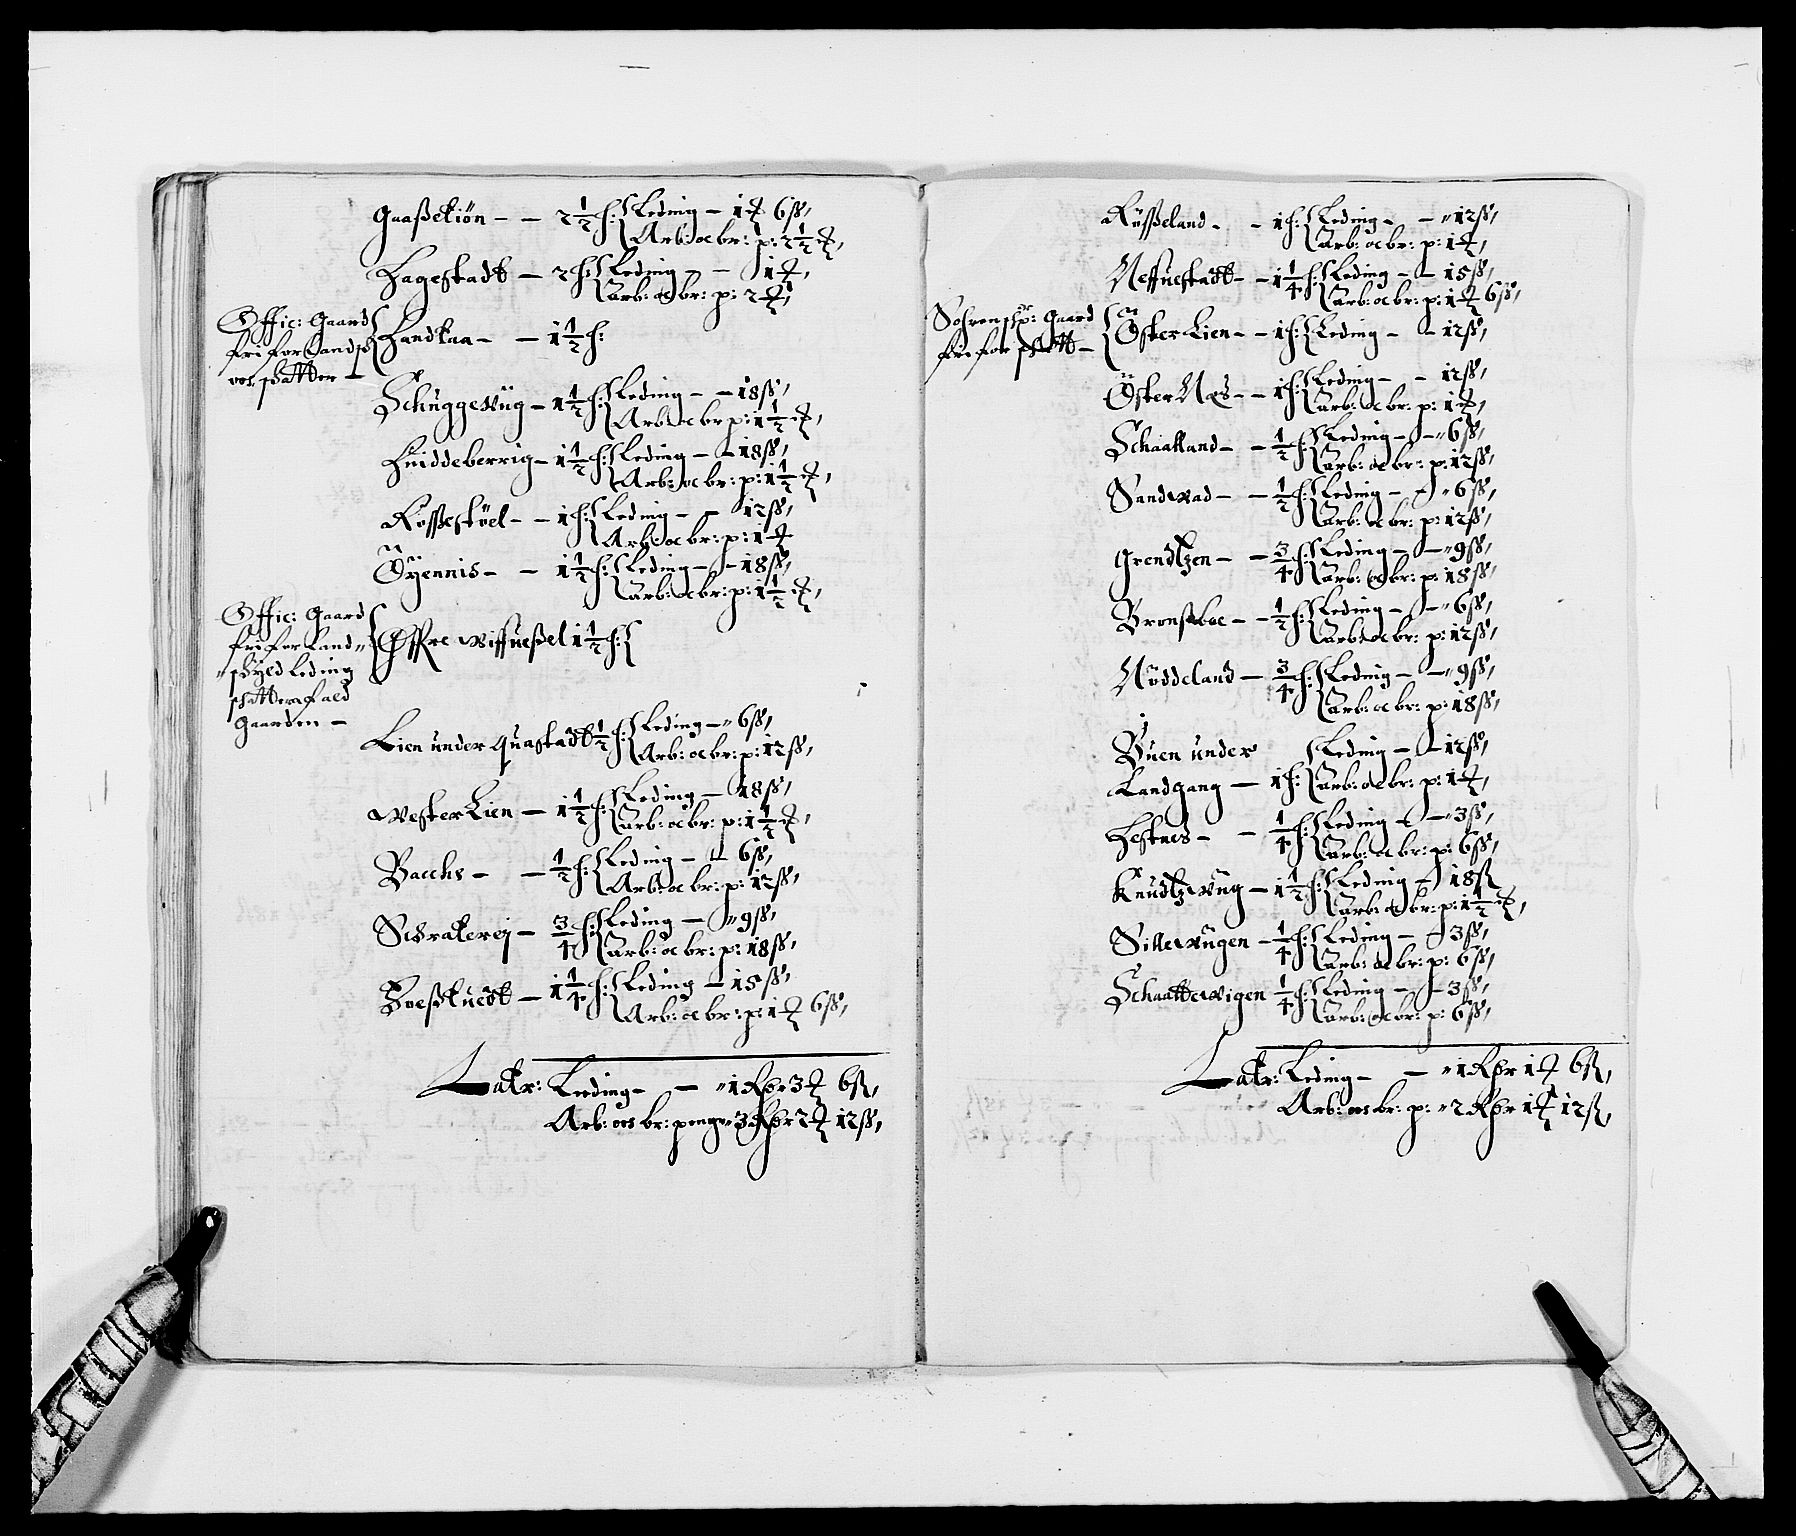 Gaaßekiön – – 2 1/2 h: Leding – 1 ₰ 6 ß,
Arb: oc br: p: 2 1/2 ₰,
Hagestadt – 2 h: Leding – – 1 ₰,
arb: oc br: p: 2 ₰,
Offic: Gaard
fri for Landsk
oc schatter –
Handkaa – – 1 1/2 h:
Schuggevüg – 1 1/2 h: Leding – – 18 ß,
Arb: oc br p: 1 1/2 ₰,
Huiddeberrig – 1 1/2 h: Leding – – 18 ß,
Arb: oc br: p: 1 1/2 ₰,
Rossestöel – – 1 h: Leding – – 12 ß,
Arb: oc br: p: 1 ₰
Öyennis – – 1 1/2 h: Leding – – 18 ß,
arb: oc br: p: 1 1/2 ₰,
Offic: Gaard
fri for Land-
schyld leding
schatter af ald
Gaarden –
Øffre Wiffueßel 1 1/2 h:
Lien under quastadt 1/2 h: Leding – 6 ß,
Arb: oc br: p: 12 ß,
Wester Lien – 1 1/2 h: Leding – 18 ß,
arb: oc br: p: 1 1/2 ₰,
Bacche – – 1/2 h: Leding – – 6 ß,
Arb: oc br: p: 12 ß,
Schrakerej – 3/4 h: Leding – 9 ß,
arb: oc br: p: 18 ß,
Boeßkuedt – 1 1/4 h: Leding – 15 ß,
Arb: oc br: p: 1 ₰ 6 ß,
Latr: Leding – – 1 Rdr 3 ₰ 6 ß,
Arb: oc br: penge 3 Rdr 2 ₰ 12 ß,
Rüsseland – – 1 h: Leding – – 12 ß,
arb: oc br: p: 1 ₰,
Neffuestadt – – 1 1/4 h: Leding – – 15 ß,
arb: oc br: p: 1 ₰ 6 ß,
Sohrenschr: Gaard
fri for schatt –
Öster Lien – – 1 h: Leding – – 12 ß,
Öster Næs – – 1 h: Leding – – 12 ß,
arb: oc br: p: 1 ₰,
Schaatland – – 1/2 h: Leding – – 6 ß,
arb: oc br: p: 12 ß,
Sandwad – – 1/2 h: Leding – – 6 ß,
arb: oc br: p: 12 ß,
Grendtzen – – 3/4 h: Leding – – 9 ß,
arb: oc br: p: 18 ß,
Bronsboe – – 1/2 h: Leding – – 6 ß,
arb: oc br: p: 12 ß,
Nöddeland – 3/4 h: Leding – – 9 ß,
arb: oc br: p: 18 ß,
Buen under Leding – – 12 ß,
Landgang – 1 h: arb: oc br: p: 1 ₰,
Hestnes – – 1/4 h: Leding – – 3 ß,
arb: oc br: p: 6 ß,
Knudtzwüg – 1 1/2 h: Leding – 18 ß
arb: oc br: p: 1 1/2 ₰,
Sillewügen – 1/4 h: Leding – – 3 ß,
arb: oc br: p: 6 ß,
Schaattewigen 1/4 h: Leding – – 3 ß,
arb: oc br: p: 6 ß,
Latr: Leding – – 1 Rdr 1 ₰ 6 ß,
Arb: oc br: p: 2 Rdr 1 ₰ 12 ß,